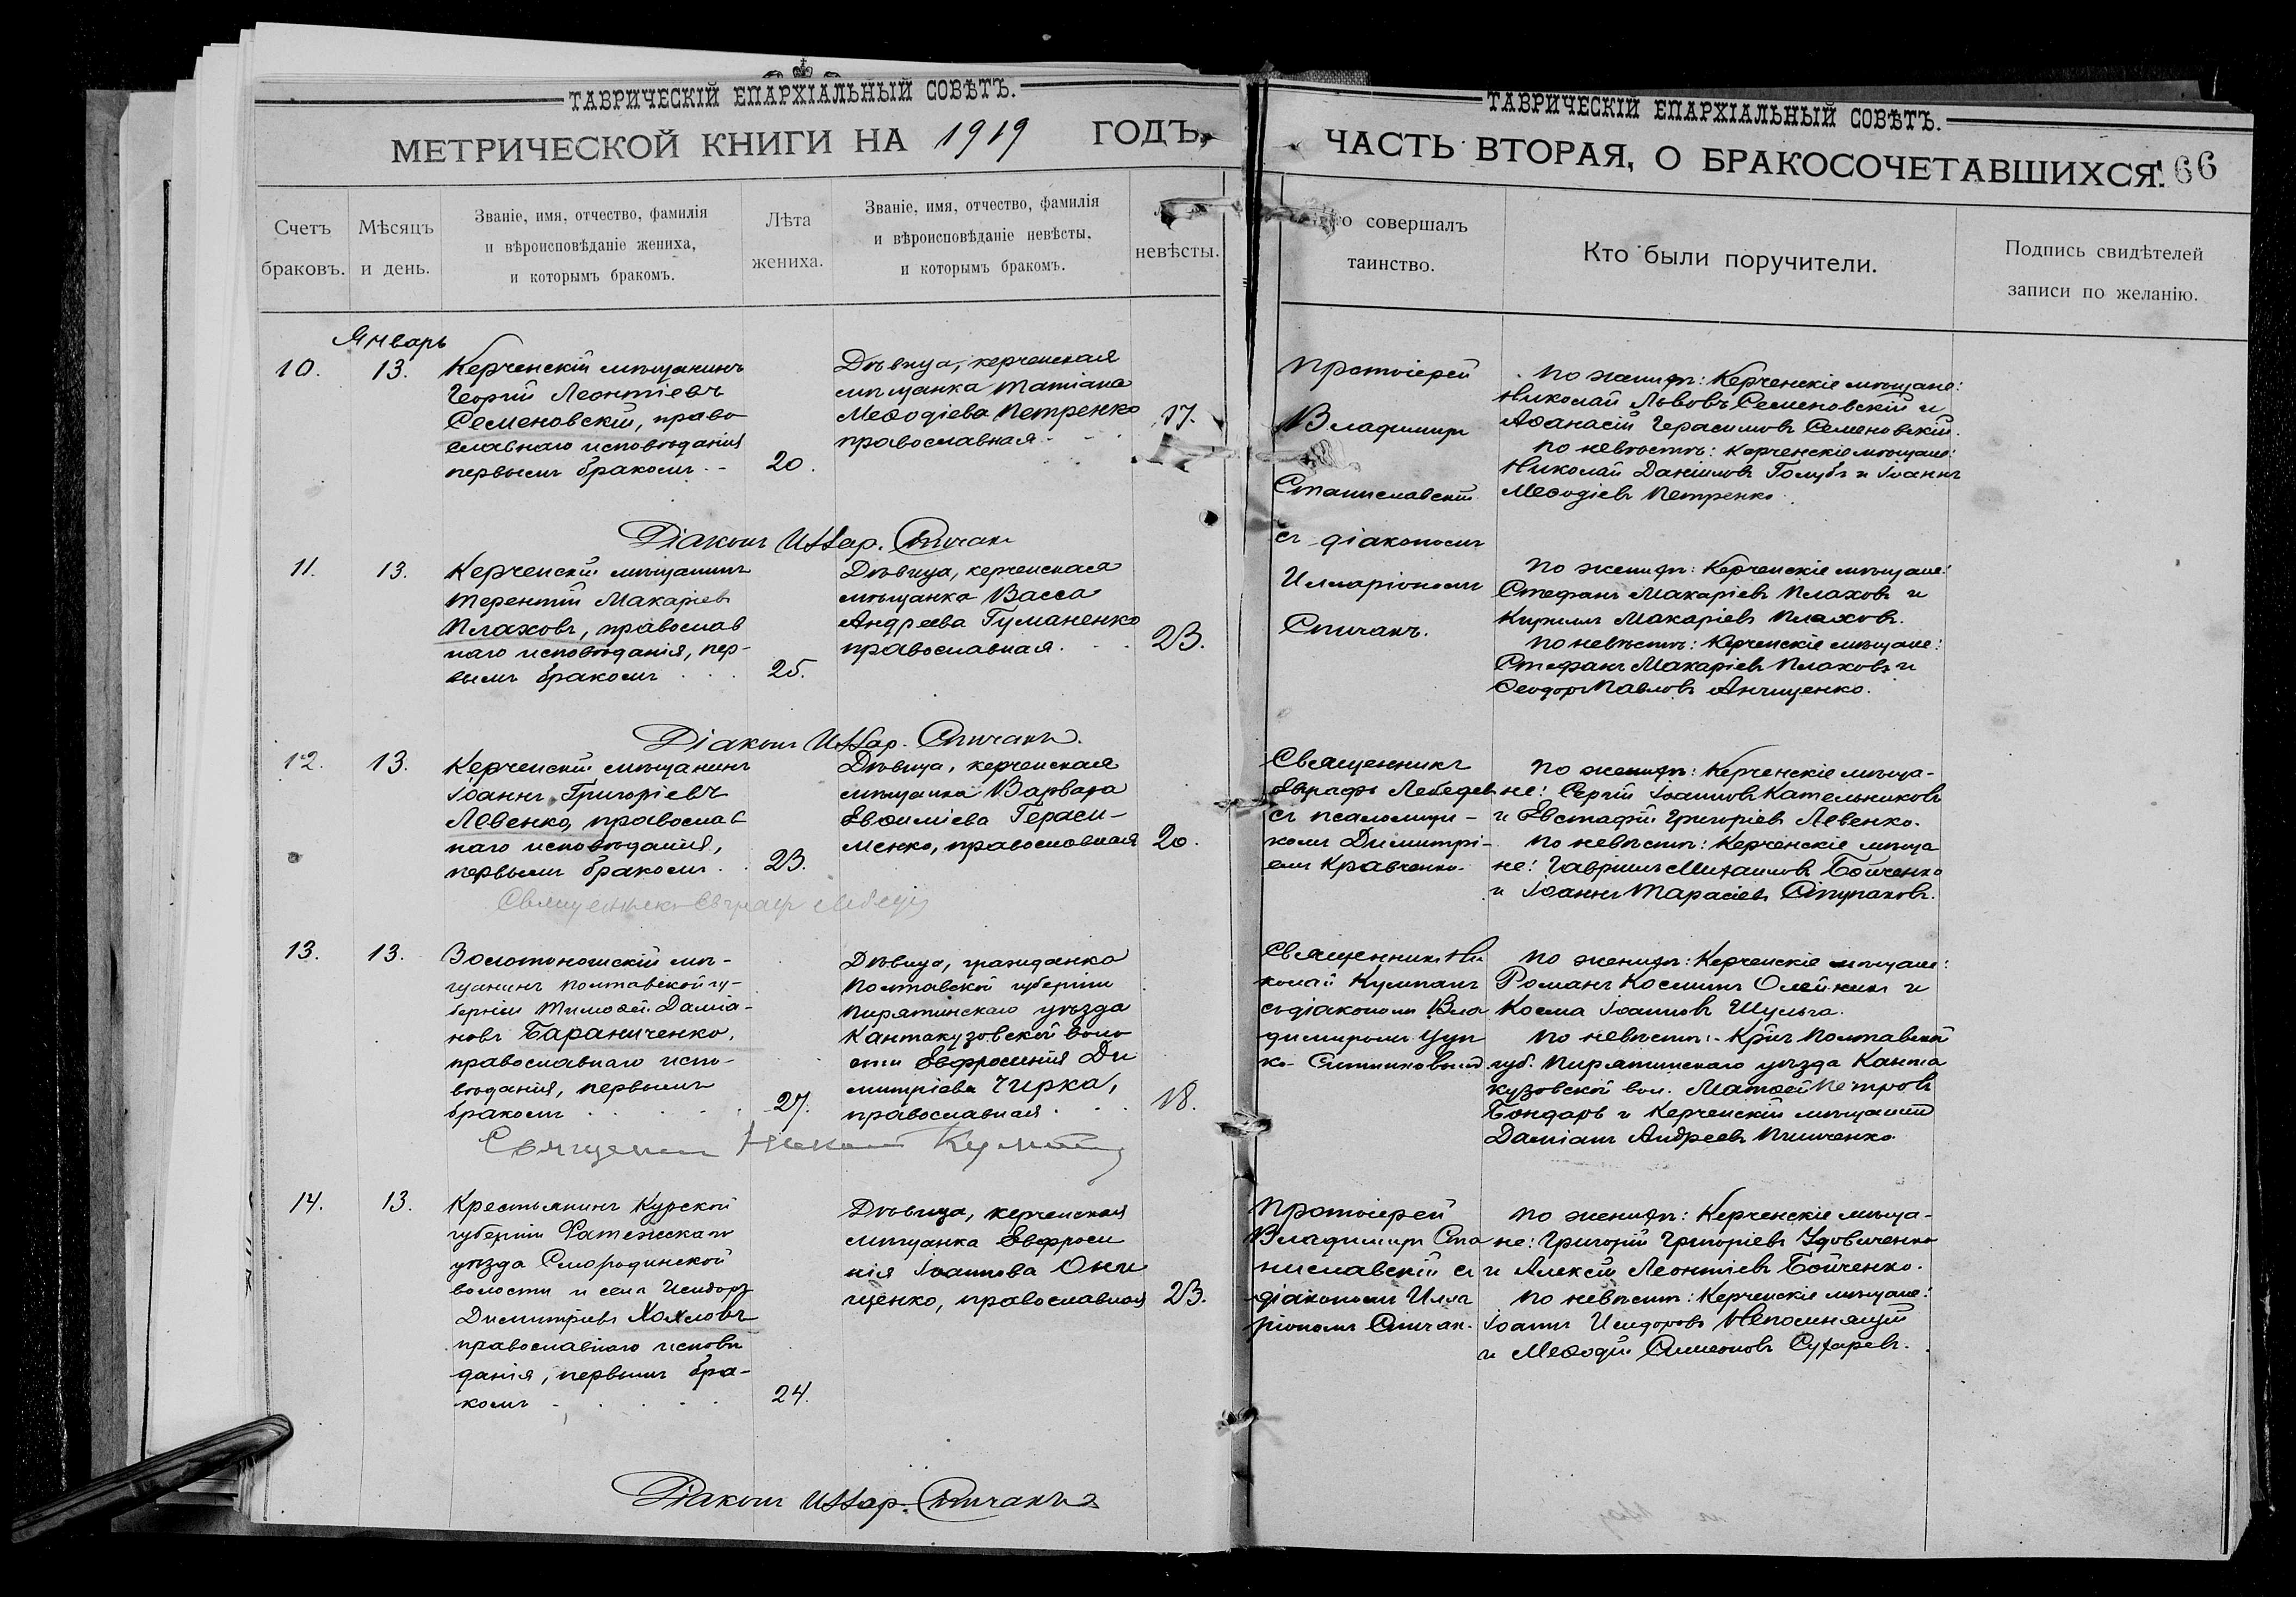 ТАВРИЧЕСКІЙ ЕПАРХІАЛЬНЫЙ СОВѢТЪ.
МЕТРИЧЕСКОЙ КНИГИ НА 1919 ГОДЪ,
Счетъ браковъ.
Мѣсяцъ и день.
Званіе, имя, отчество, фамилія
и вѣроисповѣданіе жениха,
и которымъ бракомъ.
Лѣта
жениха.
Званіе, имя, отчество, фамилія
и вѣроисповѣданіе невѣсты,
и которымъ бракомъ.
невѣсты.
ТАВРИЧЕСКІЙ ЕПАРХІАЛЬНЫЙ СОВѢТЪ.
ЧАСТЬ ВТОРАЯ, О БРАКОСОЧЕТАВШИХСЯ.
66
совершалъ
таинство.
Кто были поручители.
Подпись свидѣтелей
записи по желанію.
Январь
10.
13.
Керченскій мѣщанинъ
Георгій Леонтіевъ
Семеновскій, право
славнаго исповѣданія
первымъ бракомъ.
20.
Дѣвица, керченская
мѣщанка Татіана
Меѳодіева Петренко
православная.
17.
Протоіерей
Владимиръ
Станиславскій
съ діакономъ
Илларіономъ
Спичакъ.
По женихѣ: Керченскіе мѣщане:
Николай Львовъ Семеновскій и
Аѳанасій Герасимовъ Семеновскій.
По невѣстѣ: Керченскіе мѣщане:
Николай Даніиловъ Голубъ и Іоаннъ
Меѳодіевъ Петренко.
Діаконъ Иллар. Спичакъ
11.
13.
Керченскій мѣщанинъ
Терентій Макаріевъ
Плаховъ, православ
наго исповѣданія, пер-
вымъ бракомъ
25.
Дѣвица, керченская
мѣщанка Васса
Андреева Гуманенко
православная.
23.
По женихѣ: Керченскіе мѣщане:
Стефанъ Макаріевъ Плаховъ и
Кириллъ Макаріевъ Плаховъ.
По невѣстѣ: Керченскіе мѣщане:
Стефанъ Макаріевъ Плаховъ и
Ѳеодоръ Павловъ Анищенко.
Діаконъ Иллар. Спичакъ.
12.
13.
Керченскій мѣщанинъ
Іоаннъ Григоріевъ
Левенко, православ
наго исповѣданія,
первымъ бракомъ.
23.
Дѣвица, керченская
мѣщанка Варвара
Евѳиміева Гераси-
менко, православная
20.
Священникъ
Евграфъ Лебедев
съ псаломщи-
комъ Димитрі-
емъ Кравченко.
По женихѣ: Керченскіе мѣща-
не: Сергій Іоанновъ Кательниковъ
и Евстафій Григоріевъ Левенко.
По невѣстѣ: Керченскіе мѣща
не: Гавріилъ Михаиловъ Бойченко
и Іоаннъ Тарасіевъ Ступаковъ.
Священникъ Евграфъ Лебедев
13.
13.
Золотоношскій мѣ-
щанинъ Полтавской гу-
берніи Тимоѳей Даміа-
новъ Бараниченко,
православнаго испо-
вѣданія, первымъ
бракомъ
27.
Дѣвица, гражданка
Полтавской губерніи
Пирятинскаго уѣзда
Кантакузовской воло
сти Евфросинія Ди
митріева Чирка,
православная.
18.
Священникъ Ни
колай Кулпанъ
съ діакономъ Вла
димиромъ
По женихѣ: Керченскіе мѣщане:
Романъ Косминъ Олейникъ и
Косма Іоанновъ Шульга.
По невѣстѣ: Кр-нъ Полтавской
губ. Пирятинскаго уѣзда Канта
кузовской вол. Матѳей Петровъ
Бондарь и Керченскій мѣщанинъ
Даміанъ Андреевъ Пимченко
Священникъ Николай
14.
13.
Крестьянинъ Курской
губерніи Фатежскаго
уѣзда Смородинской
волости и села Исидоръ
Димитріевъ Хохловъ
православнаго исповѣ
данія, первымъ бра-
комъ
24.
Дѣвица, керченская
мѣщанка Евфроси
нія Іоаннова Они
щенко, православная
23.
Протоіерей
Владимиръ Ста
ниславскій съ
діакономъ Илла
ріономъ Спичак.
По женихѣ: Керченскіе мѣща-
не: Григорій Григоріевъ Удовиченко
и Алексій Леонтіевъ Бойченко.
По невѣстѣ: Керченскіе мѣщане:
Іоаннъ Исидоровъ Непомнящій
и Меѳодій Симеоновъ Сухаревъ.
Діаконъ Иллар. Спичакъ